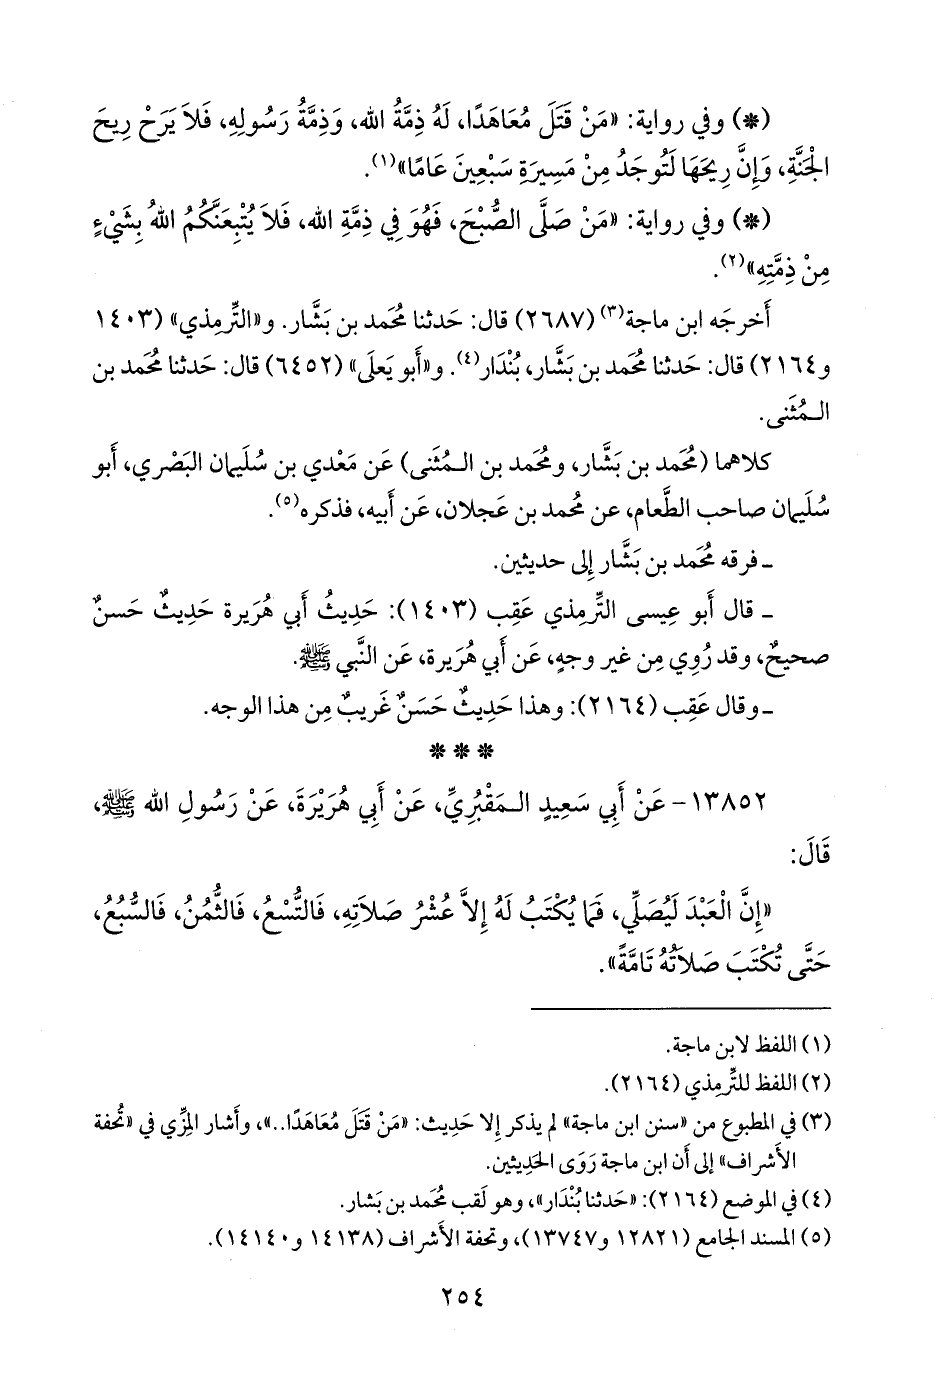 (*) وفي رواية: «مَنْ قَتَلَ مُعَاهَدًا، لَهُ ذِمَّةُ الله، وَذِمَّةُ رَسُولِهِ، فَلاَ يَرَحْ رِيحَ
الْجَنَّةِ، وَإِنَّ رِيحَهَا لَتُوجَدُ مِنْ مَسِيرَةِ سَبْعِينَ عَامًا»(١).
(*) وفي رواية: «مَنْ صَلَّى الصُّبْحَ، فَهُوَ فِي ذِمَّةِ الله، فَلاَ يُتْبِعَنَّكُمُ اللهُ بِشَيْءٍ
مِنْ ذِمَّتِهِ»(٢).
أَخرجَه ابن ماجة(٣) (٢٦٨٧) قال: حَدثنا مُحَمد بن بَشَّار. و«التِّرمِذي» (١٤٠٣
و٢١٦٤) قال: حَدثنا مُحَمد بن بَشَّار، بُنْدَار(٤). و«أَبو يَعلَى» (٦٤٥٢) قال: حَدثنا مُحَمد بن
الـمُثَنى.
كلاهما (مُحَمد بن بَشَّار، ومُحَمد بن الـمُثَنى) عَن مَعْدي بن سُلَيمان البَصْري، أَبو
سُلَيمان صاحب الطَّعام، عن مُحمد بن عَجلان، عَن أَبيه، فذكره(٥).
ـ فرقه مُحَمد بن بَشَّار إِلى حديثين.
ـ قال أَبو عِيسى التِّرمِذي عَقِب (١٤٠٣): حَدِيثُ أَبي هُرَيرة حَدِيثٌ حَسنٌ
صحيحٌ، وقد رُوِي مِن غير وجهٍ، عَن أَبي هُرَيرة، عَن النَّبي ﷺ.
ـ وقال عَقِب (٢١٦٤): وهذا حَدِيثٌ حَسَنٌ غَريبٌ مِن هذا الوجه.
* * *
١٣٨٥٢- عَنْ أَبِي سَعِيدٍ الـمَقْبُرِيِّ، عَنْ أَبِي هُرَيْرَةَ، عَنْ رَسُولِ الله ﷺ،
قَالَ:
«إِنَّ الْعَبْدَ لَيُصَلِّي، فَمَا يُكْتَبُ لَهُ إِلاَّ عُشْرُ صَلاَتِهِ، فَالتُّسْعُ، فَالثُّمُنُ، فَالسُّبُعُ،
حَتَّى تُكْتَبَ صَلاَتُهُ تَامَّةً».
(١) اللفظ لابن ماجة.
(٢) اللفظ للتِّرمِذي (٢١٦٤).
(٣) في المطبوع من «سنن ابن ماجة» لم يذكر إِلا حَدِيث: «مَنْ قَتَلَ مُعَاهَدًا..»، وأَشار المِزِّي في «تُحفة
الأَشراف» إِلى أَن ابن ماجة رَوَى الحَدِيثين.
(٤) في الموضع (٢١٦٤): «حَدثنا بُنْدَار»، وهو لَقب مُحَمد بن بَشار.
(٥) المسند الجامع (١٢٨٢١ و١٣٧٤٧)، وتحفة الأَشراف (١٤١٣٨ و١٤١٤٠).
٢٥٤